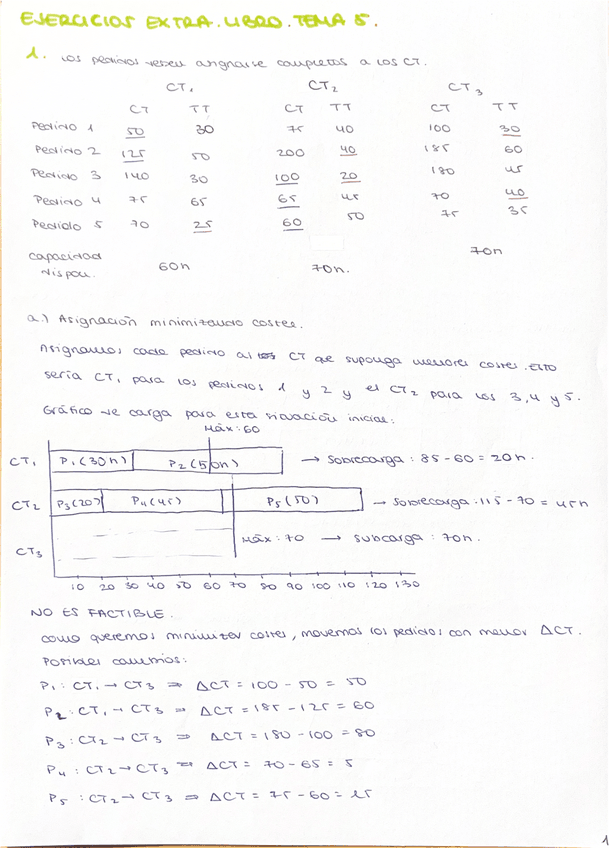 EJERCICIOS EXTRA. LIBRO. TEMA 5.
1. Los pedidos deben asignarse completos a los CT.
CT1 CT2 CT3
CT TT CT TT CT TT
Pedido 1 50 30 75 40 100 30
Pedido 2 125 50 200 40 185 60
Pedido 3 140 30 100 20 180 45
Pedido 4 75 65 65 45 70 40
Pedido 5 70 25 60 50 75 35
capacidad
dispon. 60h 70h. 70h
a.) Asignación minimizando costes.
Asignamos cada pedido al CT que suponga menores costes. Esto
sería CT1 para los pedidos 1 y 2 y el CT2 para los 3, 4 y 5.
Gráfico de carga para esta situación inicial:
Máx: 60
CT1 P1 (30h) P2 (50h) → Sobrecarga: 85 - 60 = 20h.
CT2 P3 (20) P4 (45) P5 (50) → Sobrecarga: 115 - 70 = 45h
CT3 Máx: 70 → Subcarga: 70h.
10 20 30 40 50 60 70 80 90 100 110 120 130
NO ES FACTIBLE.
Como queremos minimizar costes, movemos los pedidos con menor ΔCT.
Posibles cambios:
P1: CT1 → CT3 ⇒ ΔCT = 100 - 50 = 50
P2: CT1 → CT3 ⇒ ΔCT = 185 - 125 = 60
P3: CT2 → CT3 ⇒ ΔCT = 180 - 100 = 80
P4: CT2 → CT3 ⇒ ΔCT = 70 - 65 = 5
P5: CT2 → CT3 ⇒ ΔCT = 75 - 60 = 15
1